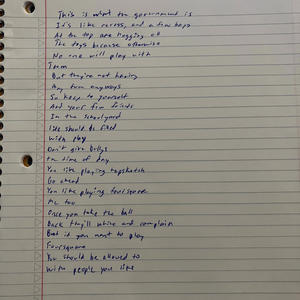 This is what the government is
It's like recess, and a few boys
At the top are hogging all
The toys because otherwise
No one will play with
Them
But they're not having
Any fun anyways
So keep to yourself
And your few friends
In the schoolyard
Life should be filled
With play
Don't give bullys
the time of day
You like playing hopskotch
Go ahead
You like playing foursquare
Me too
Once you take the ball
Back they'll whine and complain
But if you want to play
Foursquare
You should be allowed to
With people you like